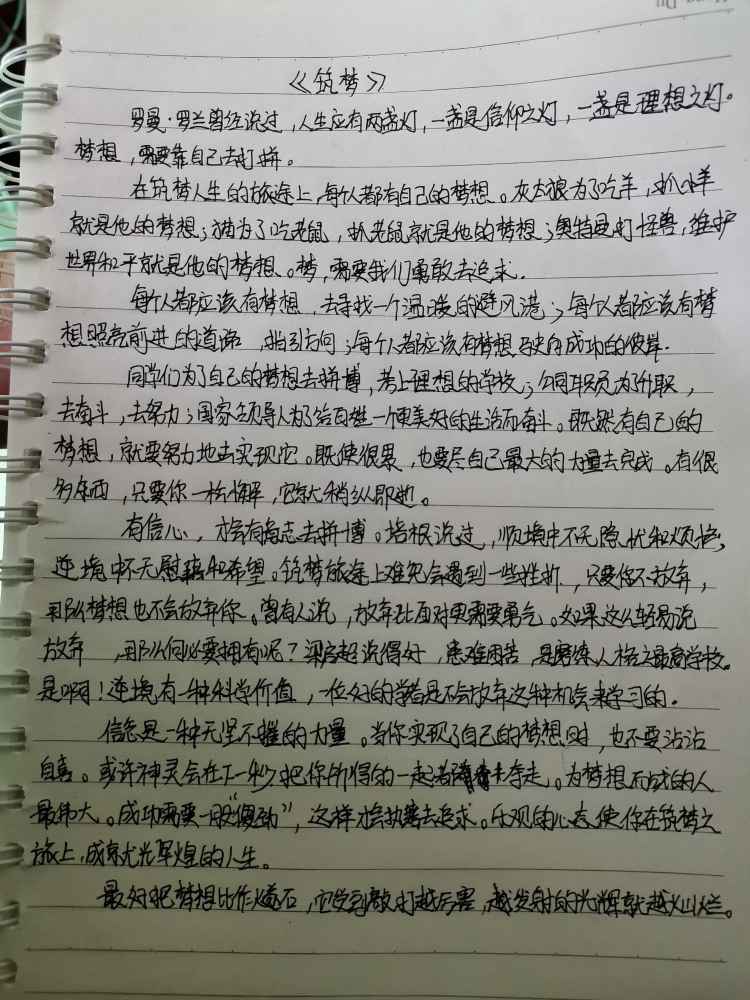 《筑梦》
罗曼·罗兰曾经说过，人生应有两盏灯，一盏是信仰之灯，一盏是理想之灯。
梦想，需要靠自己去打拼。
在筑梦人生的旅途上，每个人都有自己的梦想。灰太狼为了吃羊，抓小羊
就是他的梦想；猫为了吃老鼠，抓老鼠就是他的梦想；奥特曼打怪兽，维护
世界和平就是他的梦想。梦，需要我们勇敢去追求.
每个人都应该有梦想，去寻找一个温暖的避风港；每个人都应该有梦
想照亮前进的道路，指引方向；每个人都应该有梦想驶向成功的彼岸.
同学们为了自己的梦想去拼博，考上理想的学校；公司职员为了升职，
去奋斗，去努力；国家领导人为了给百姓一个更美好的生活而奋斗。既然有自己的
梦想，就要努力地去实现它。既使很累，也要尽自己最大的力量去完成。有很
多东西，只要你一松懈，它就稍纵即逝。
有信心，才会有斗志去拼博。培根说过，顺境中不无隐忧和烦恼；
逆境中不无慰藉和希望。筑梦旅途上难免会遇到一些挫折，只要你不放弃，
那么梦想也不会放弃你。曾有人说，放弃比面对更需要勇气。如果这么轻易说
放弃，那么何必要拥有呢？梁启超说得好，患难困苦，是磨练人格之最高学校。
是啊！逆境有一种科学价值，一位好的学者是不会放弃这种机会来学习的.
信念是一种无坚不摧的力量。当你实现了自己的梦想时，也不要沾沾
自喜。或许神灵会在下一秒把你所得的一起都夺走。为梦想而战的人
最伟大。成功需要一股“傻劲”，这样才会执著去追求。乐观的心态使你在筑梦之
旅上，成就光辉煌的人生。
最好把梦想比作燧石，它受到敲打越厉害，越发射的光辉就越灿烂。